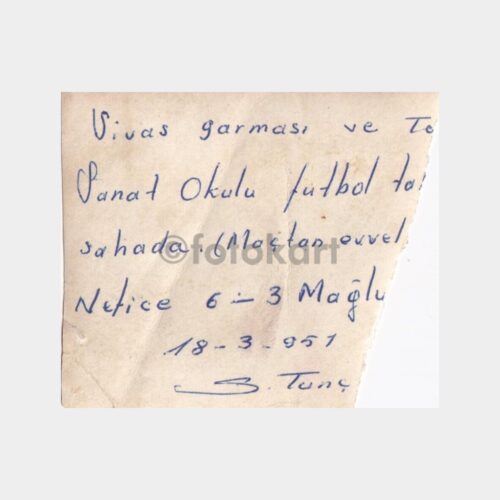 Sivas garması ve To
Sanat Okulu futbol ta
sahada. (Maçtan evvel
Netice 6 – 3 Mağlu
18 - 3 - 951
S. Tunç
©fotokart